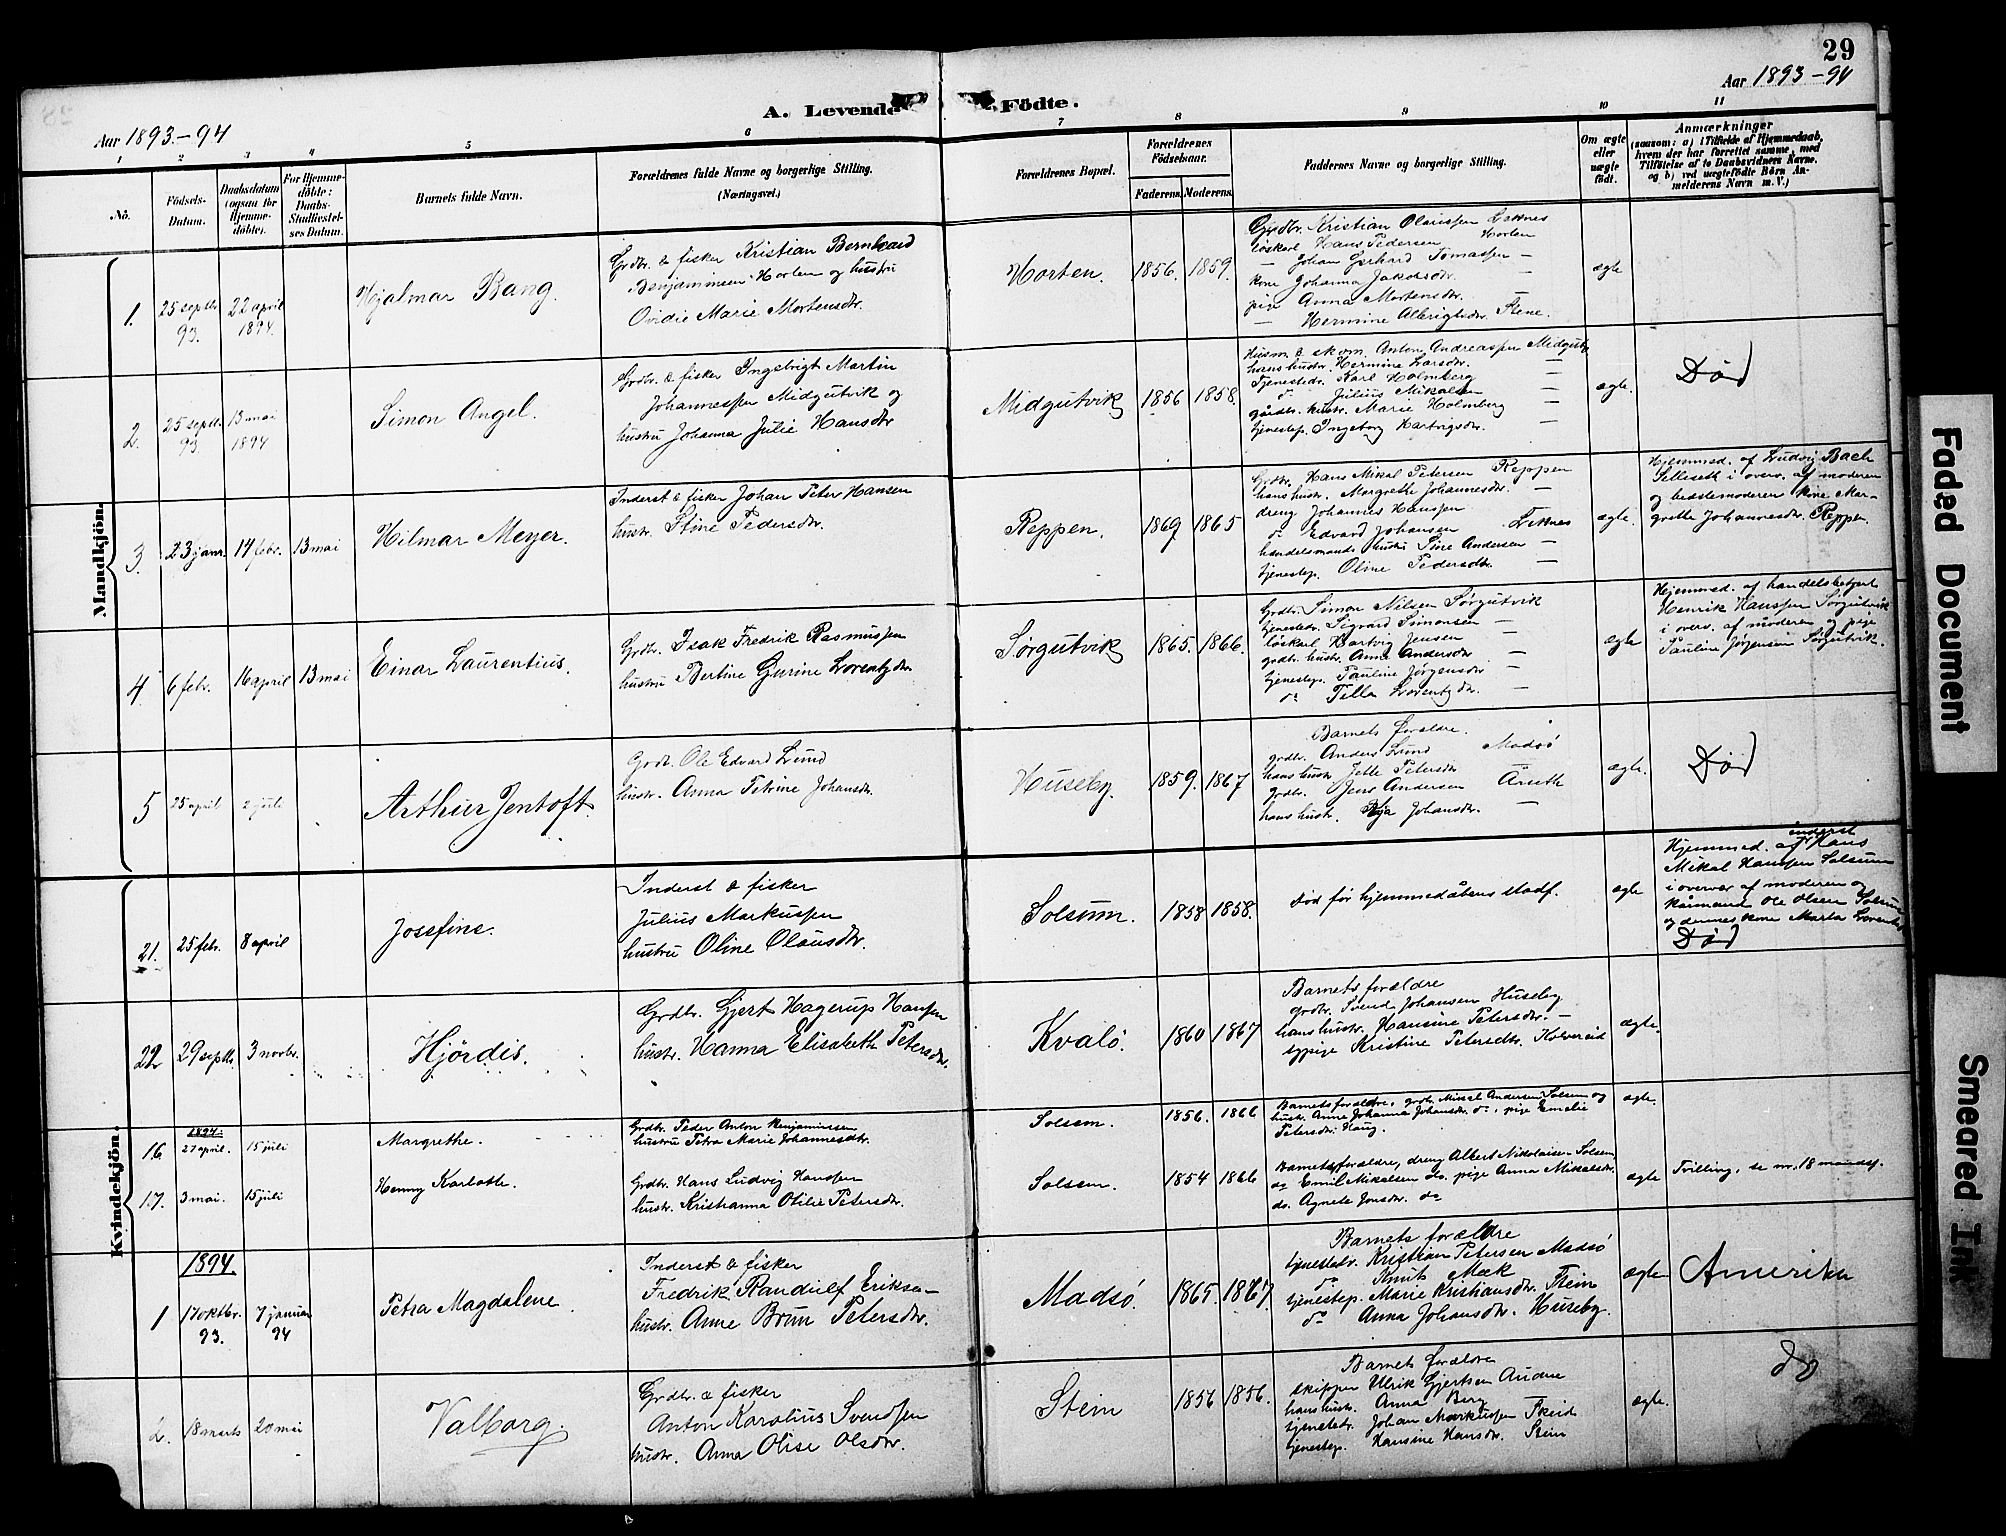 29
Aar 1893-94
A. Levende Födte.
Aar 1893-94
1 2 3 4 5 6 7 8 9 10 11
No.
Födsels-Datum.
Daabsdatum (ogsaa for Hjemme-döbte).
For Hjemme-döbte: Daabs-Stadfæstel-ses Datum.
Barnets fulde Navn.
Forældrenes fulde Navne og borgerlige Stilling.
(Næringsvei.)
Forældrenes Bopæl.
Forældrenes Födselsaar.
Faderens. Moderens.
Faddernes Navne og borgerlige Stilling.
Om ægte eller uægte födt.
Anmærkninger
(saasom: a) i Tilfælde af Hjemmedaab,
hvem der har forrettet samme, med
Tilföielse af to Daabsvidners Navne,
og b) ved uægtefödte Börn An-
melderens Navn m.V.)
Mandkjön.
1. 25 septbr. 93. 22 april 1894.
Hjalmar Bang.
Grdbr. & fisker Kristian Bernhard
Benjaminsen Horten og hustru
Ovidie Marie Mortensdtr.
Horten. 1856. 1859.
Grdbr. Kristian Olaussen Leknes
løskarl Hans Pedersen Horten
— Johan Gerhard Tomassen —
kone Johanna Jakobsdtr. —
pige Anna Mortensdtr. —
— Hermine Albrigtsdtr. Stene.
ægte
2. 25 septbr. 93. 13 mai 1894
Simon Angel.
Grdbr. & fisker Ingebrigt Martin
Johannessen Midgutvik og
hustru Johanna Julie Hansdtr
Midgutvik 1856 1858.
Husm. & skom. Anton Andreassen Midgutv.
hans hustr. Hermine Larsdtr. —
Tjenestedr. Karl Holmberg —
do Julius Mikalsen —
gårdbr. hustr. Marie Holmberg —
tjenestep. Ingeborg Hartvigsdtr. —
ægte.
Død
3. 23 janr. 14 febr. 13 mai
Hilmar Meyer.
Inderst & fisker Johan Peter Hansen
hustr. Stine Pedersdtr.
Reppen. 1869 1865
Grdbr. Hans Mikal Petersen Reppen
hans hustr. Margrethe Johannesdtr. —
dreng Johannes Hanssen
do Edvard Johansen Leknes
handelsmands hustru Sine Andersen —
tjenestep. Oline Pedersdtr. —
ægte.
Hjemmed. af Ludvig Bach
Selleseth i overv. af moderen
og bedstemoderen kone Mar-
grethe Johannesdtr. Reppen.
4. 6 febr. 16 april 13 mai
Einar Laurentius.
Grdbr. Isak Fredrik Rasmussen
hustru Bertine Gurine Lorentzdtr
Sørgutvik 1865. 1866.
Grdbr. Simon Nilsen Sørgutvik
tjenestedr. Sigvard Simonsen —
løskarl Hartvig Jensen —
grdbr. hustr. Anna Andersdtr —
tjenestep. Pauline Jørgensdtr —
do Tella Lorentzdtr. —
ægte
Hjemmed. af handelsbetjent
Henrik Hanssen Sørgutvik
i overv. af moderen og pige
Pauline Jørgensen Sørgutvik.
5 25 april 2 juli
Arthur Jentoft.
Grdb. Ole Edvard Lund
hustr. Anna Petrine Johansdtr.
Huseby. 1859. 1867
Barnets forældre.
grdbr. Anders Lund Madsö
hans hustr. Jette Petersdtr
grdbr. Jens Andersen
hans hustr. Johansdtr. —
ægte.
Død
Kvindekjön.
21. 25 febr. 8 april
Josefine.
Inderst & fisker
Julius Markussen
hustru Oline Olausdtr.
Solsum. 1858 1858.
Død før hjemmedåbens stadf.
ægte
Hjemmed. af inderst Hans
Mikal Hanssen Solsum
i overvær af moderen og
kårmand Ole Olsen Solsum
og dennes kone Marta
Død
22 29 septbr. 3 novbr.
Hjördis.
Grdbr. Gjert Hagerup Hansen
hustr. Hanna Elisabeth Petersdtr.
Kvalö. 1860 1867
Barnets forældre
grdbr. Svend Johansen Huseby
hans hustr. Hansine Petersdtr. —
sypige Kristine Petersdtr. Kolvereid
ægte.
1894.
16. 27 april. 15 juli
Margrethe.
Grdbr. Peder Anton Benjaminsen
hustru Petra Marie Johannesdtr.
Solsem. 1856. 1866
Barnets forældre, grdbr. Mikal Andersen Solsem og
hustr. Anne Johanna Johansdtr. do. pige Emelie
Petersdtr. Haug.
ægte.
17. 3 mai. 15 juli
Henny Karlotte.
Grdbr. Hans Ludvig Hanssen
hustr. Kristianna Otilie Petersdtr.
Solsem. 1854 1866
Barnets forældre, dreng Albert Nikolaisen Solsem
do Emil Mikalsen do. pige Anna Mikalsdtr.
do. Agnete Jonsdtr. do
ægte
Tvilling, se nr. 18 mandkj.
1894.
1 17 oktbr. 93. 7 januar 94
Petra Magdalene.
Inderst & fisker
Fredrik Randulf Eriksen
hustr. Anne Brun Petersdtr.
Madsö. 1865. 1867
Barnets forældre
tjenestedr. Kristian Petersen Madsö
do Knut Mæk
tjenestep. Marie Kristiansdtr. Stein
do Anna Johansdtr. Huseby.
ægte
Amerika
2. 18 marts 20 mai
Valborg.
Grdbr. & fisker
Anton Karolius Svendsen
hustr. Anna Olise Olsdtr.
Stein 1856 1856.
Barnets forældre
skipper Ulrik Gjertsen
hans hustr. Anna Berg
tjenstedr. Johan Markussen
tjenestep. Hansine Hansdtr. Stein
ægte.
Faded Document
Smeared Ink